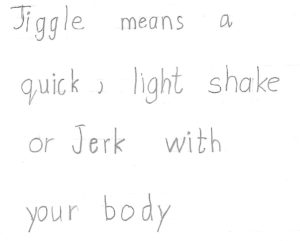 Jiggle means a
quick, light shake
or Jerk with
your body